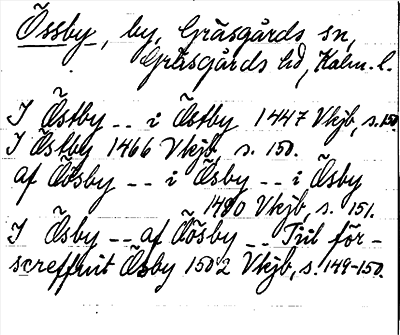 Össby, by, Gräsgårds sn,
Gräsgårds hd, Kalm. l.
I Östby -- i Östby 1447 Vkjb, s. 150
I Östby 1466 Vkjb, s. 150.
af Öösby -- i Ösby -- i Ösby
1480 Vkjb, s. 151.
I Ösby -- af Öösby -- Tiil för-
screffuit Ösby 1502 Vkjb, s. 149-150.